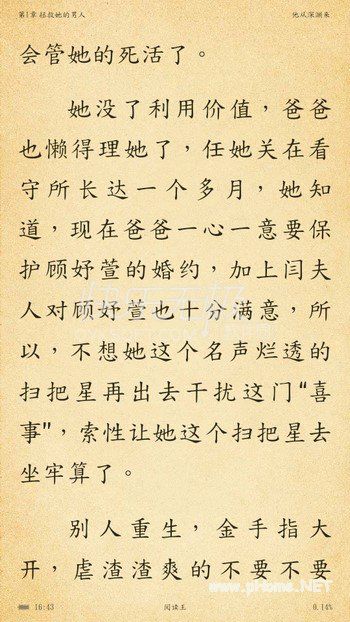 第1章 拯救她的男人 他从深渊来
会管她的死活了。
她没了利用价值，爸爸
也懒得理她了，任她关在看
守所长达一个多月，她知
道，现在爸爸一心一意要保
护顾妤萱的婚约，加上闫夫
人对顾妤萱也十分满意，所
以，不想她这个名声烂透的
扫把星再出去干扰这门“喜
事”，索性让她这个扫把星去
坐牢算了。
别人重生，金手指大
开，虐渣渣爽的不要不要
www.pHome.NET
16:43 阅读王 0.14%